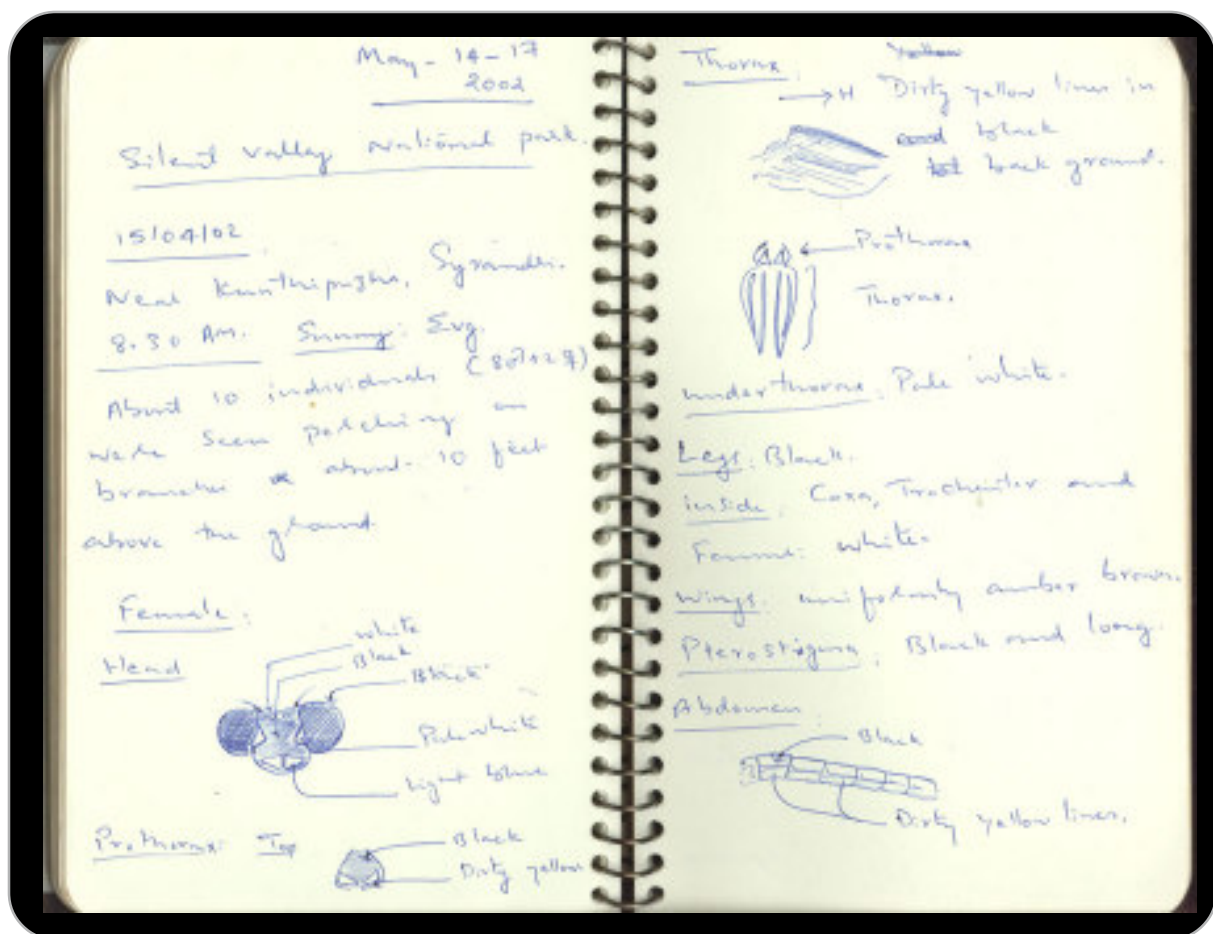 May - 14-17
2002
Silent valley National park.
15/04/02
Near Kunthipuzha, Syrandhi.
8.30 AM. Sunny: Evg.
About 10 individuals (8♂+2♀)
were seen perching on
branches about 10 feet
above the ground.
Female:
Head
white
Black
Black
Pale white
Light blue
Prothorax: Top
Black
Dirty yellow
Thorax.
Yellow
→H Dirty yellow lines in
black
back ground.
Prothorax
Thorax.
underthorax: Pale white.
Legs: Black.
inside: Coxa, Trochanter and
Femur: white.
Wings: uniformly amber brown.
Pterostigma: Black and long.
Abdomen:
Black
Dirty yellow lines.